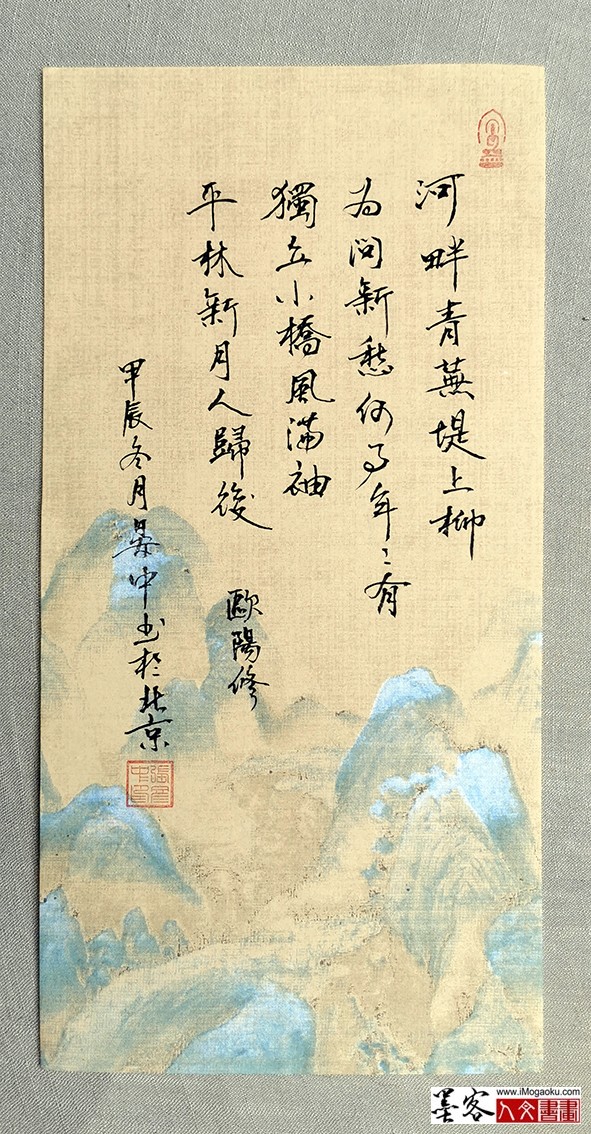 河畔青蕪堤上柳
为问新愁何事年々有
獨立小橋風滿袖
平林新月人歸後
歐陽修
甲辰冬月晏中书於北京
墨客
www.iMogaoku.com
人文書畫